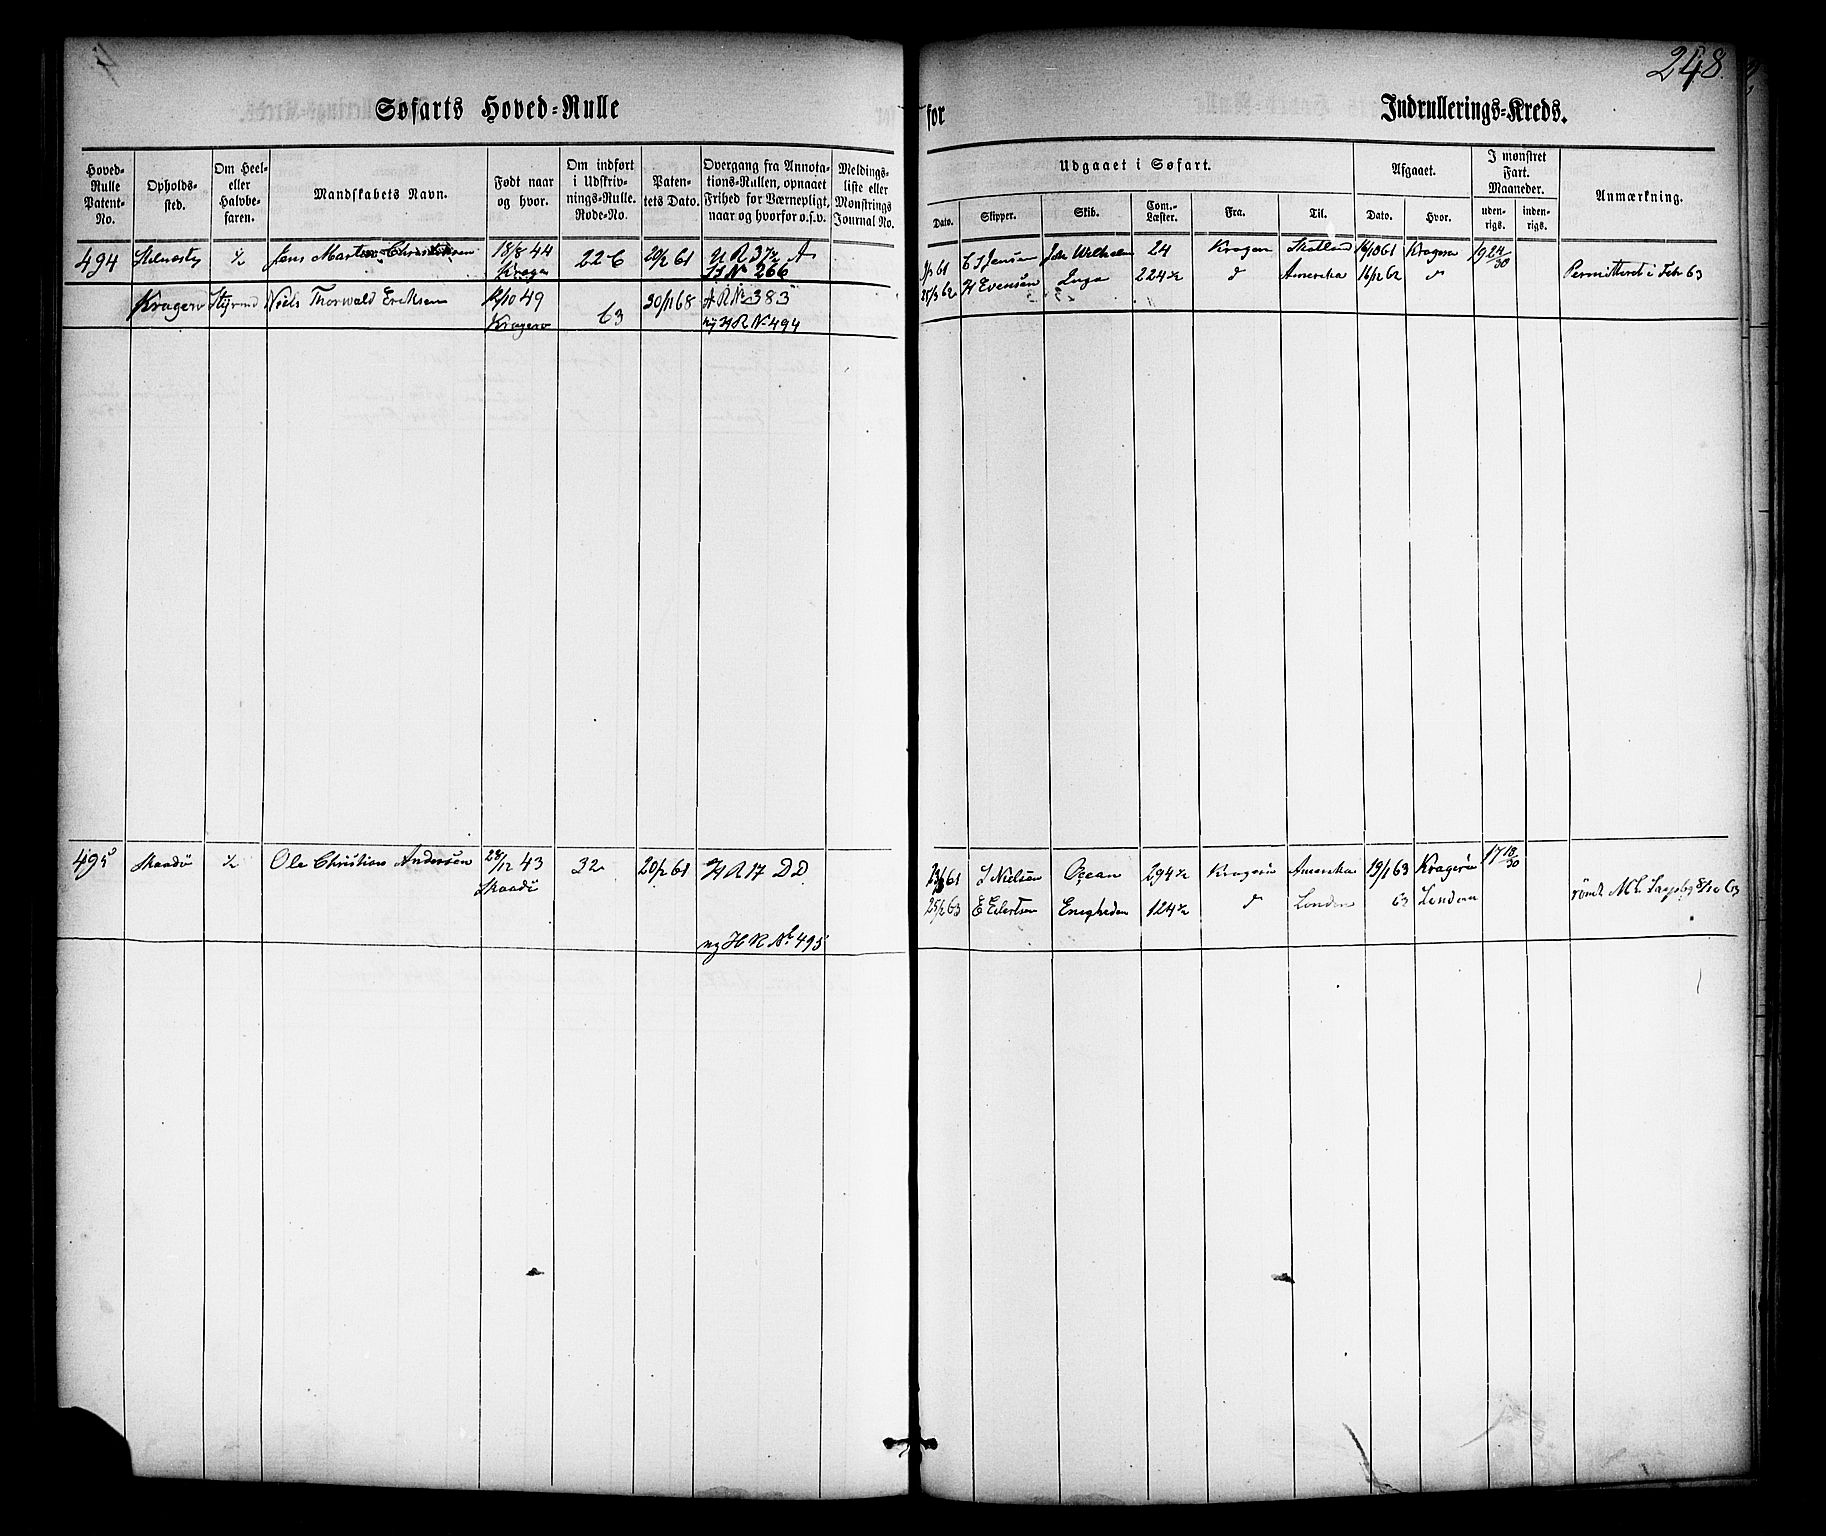 248
Søfarts Hoved=Rulle for Indrullerings=Kreds.
Hoved=Rulle Patent=No.
Opholds=sted.
Om Heel= eller Halvbe=faren.
Mandskabets Navn.
Født naar og hvor.
Om indført i Udskriv=nings=Rulle. Rode=No.
Paten=tets Dato.
Overgang fra Annota=tions=Rullen, opnaaet Frihed for Værnepligt, naar og hvorfor o.s.v.
Meldings=liste eller Mønstrings Journal No.
Udgaaet i Søfart.
Dato. Skipper. Skib. Com.=Læster. Fra. Til.
Afgaaet.
Dato. Hvor.
I mønstret Fart. Maaneder.
uden=rigs. inden=rigs.
Anmærkning.
494 ½ Jens Marten Christensen 18/8 44 226 20/2 61 U R 37½ A 61 C S Jensen 24 Kragerø Skotland 14/10 61 Kragerø 19 24/30
Kragerø No 266 25/3 62 H Evensen Inga 224½ d Amerika 16/12 62 d Permitteret i Febr 63
Kragerø Styrmd Niels Thorwald Eriksen /10 49 63 20/11 68 A R No 383
Kragerø ny H R No 494
495 Skaadø ½ Ole Christian Andersen 28/12 43 32 20/2 61 H R 17 D D 61 S Nielsen Ocean 294½ Kragerø Amerika 19/1 63 Kragerø 17 18/30
Skaadø 25/2 63 E Eilertsen Enigheden 124½ d London 63 London rømt 8/10 63
ny H R No 495